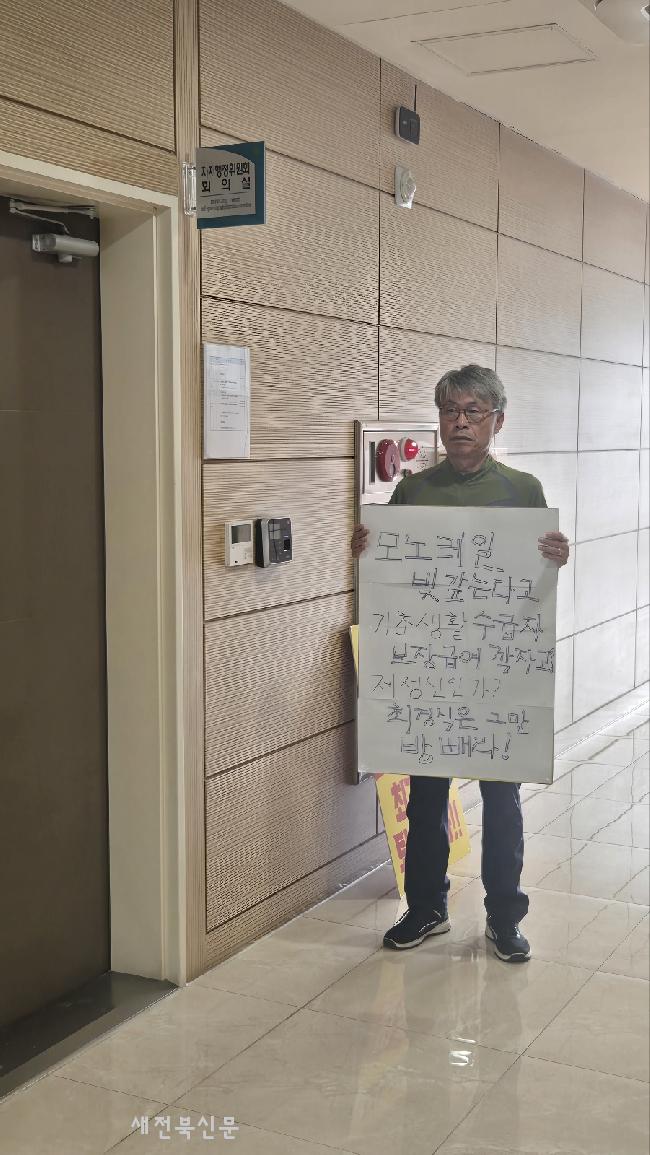 자치행정위원회
회의실
모노레일
빚 갚는다고
기초생활 수급자
보장급여 깎자고
제정신인가?
최경식은 그만
방 빼라!
새전북신문